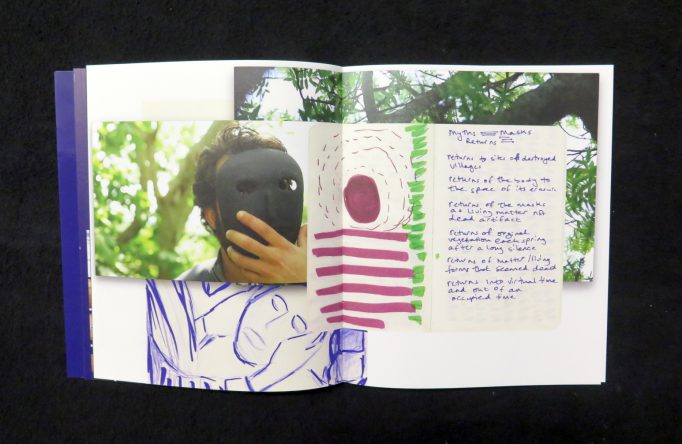 Myths Masks
Returns
returns to site of destroyed
villages
returns of the body to
the space of its erasure
returns of the masks
as living matter not
dead artifact
returns of original
vegetation each spring
after a long silence
returns of matter/living
forms that seemed dead
returns into virtual time
and out of an
occupied time